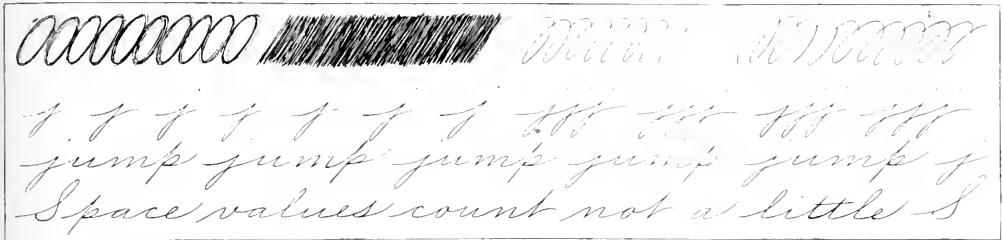 j j j j j j j jjj jjj jjj jjj
jump jump jump jump jump j
Space values count not a little S